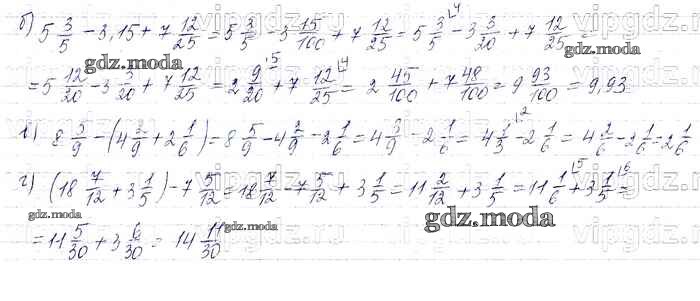 б) 5 3/5 - 3,15 + 7 12/25 = 5 3/5 - 3 15/100 + 7 12/25 = 5 3/5 - 3 3/20 + 7 12/25 =
= 5 12/20 - 3 3/20 + 7 12/25 = 2 9/20 + 7 12/25 = 2 45/100 + 7 48/100 = 9 93/100 = 9,93
в) 8 5/9 - (4 2/9 + 2 1/6) = 8 5/9 - 4 2/9 - 2 1/6 = 4 3/9 - 2 1/6 = 4 1/3 - 2 1/6 = 4 2/6 - 2 1/6 = 2 1/6
г) (18 7/12 + 3 1/5) - 7 5/12 = 18 7/12 - 7 5/12 + 3 1/5 = 11 2/12 + 3 1/5 = 11 1/6 + 3 1/5 =
= 11 5/30 + 3 6/30 = 14 11/30
gdz.moda
gdz.moda
gdz.moda
gdz.moda
gdz.moda
vipgdz.ru